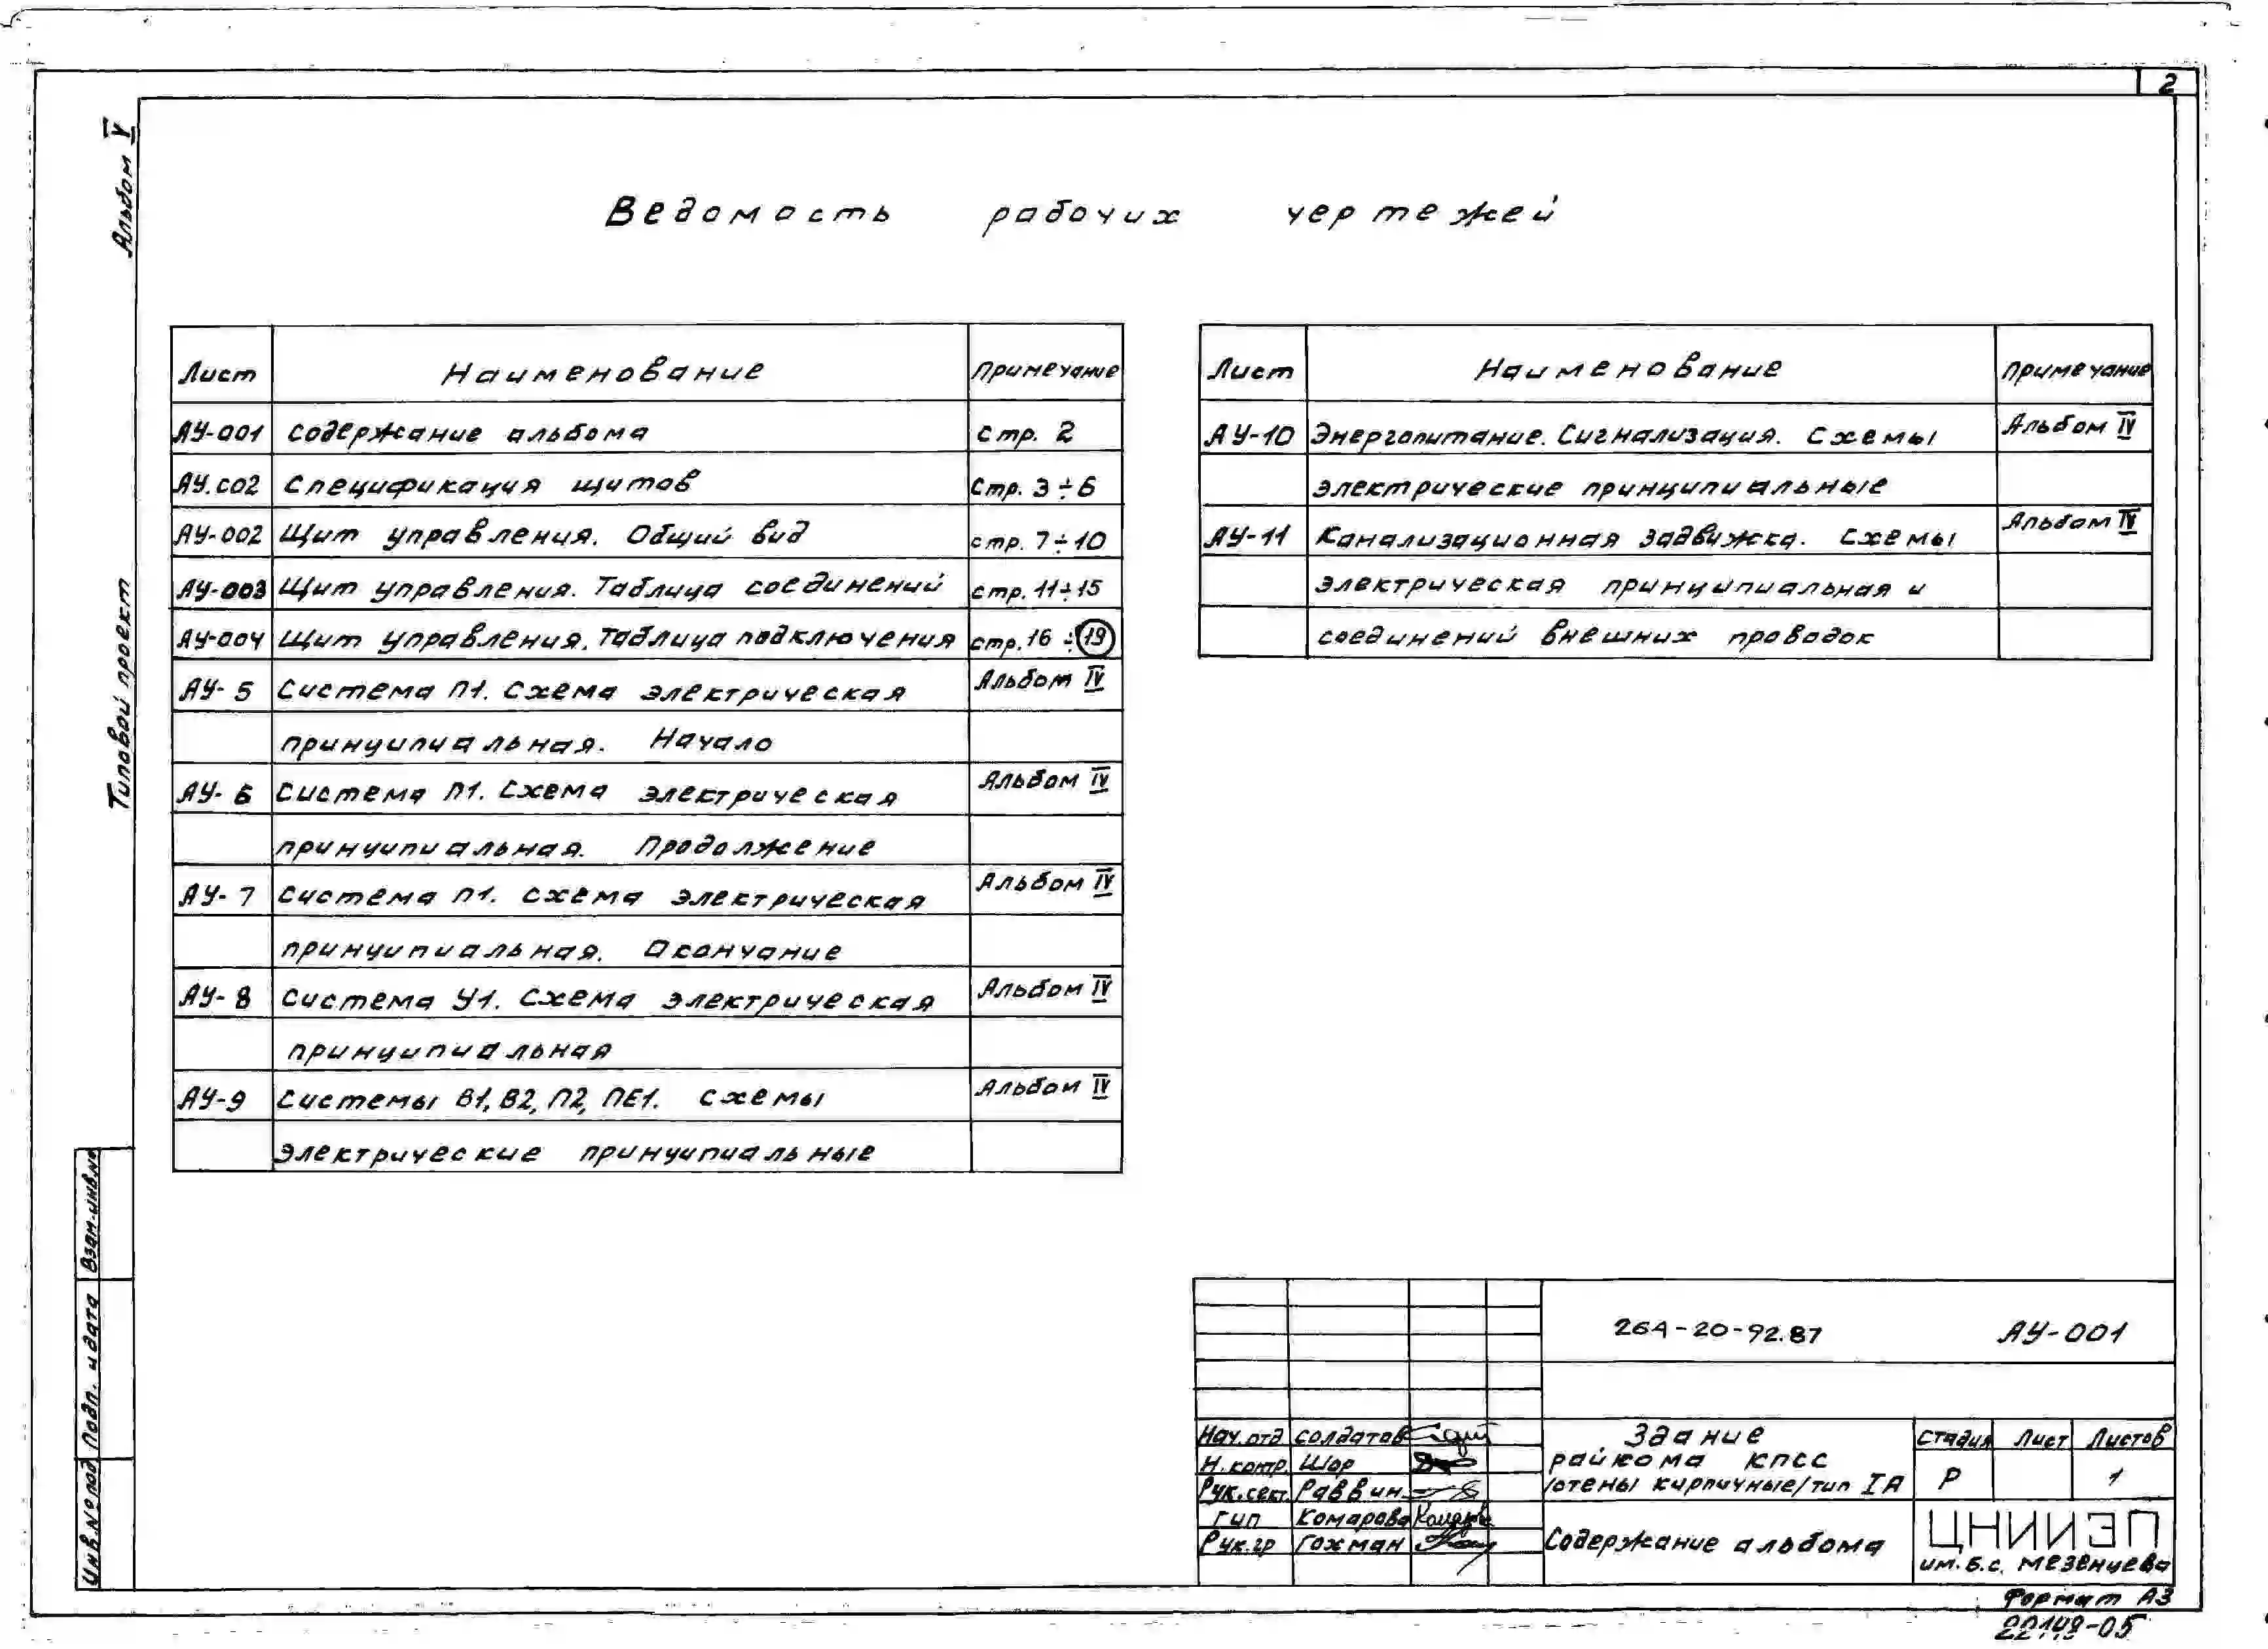 2
Альбом V
Типовой проект
Ведомость рабочих чертежей
Лист Наименование Примечание
АУ-001 Содержание альбома стр. 2
АУ.С02 Спецификация щитов стр. 3÷6
АУ-002 Щит управления. Общий вид стр. 7÷10
АУ-003 Щит управления. Таблица соединений стр. 11÷15
АУ-004 Щит управления. Таблица подключения стр. 16÷19
АУ-5 Система П1. Схема электрическая Альбом IV
принципиальная. Начало
АУ-6 Система П1. Схема электрическая Альбом IV
принципиальная. Продолжение
АУ-7 Система П1. Схема электрическая Альбом IV
принципиальная. Окончание
АУ-8 Система У1. Схема электрическая Альбом IV
принципиальная
АУ-9 Системы В1, В2, П2, ПЕ1. Схемы Альбом IV
электрические принципиальные
Лист Наименование Примечание
АУ-10 Энергопитание. Сигнализация. Схемы Альбом IV
электрические принципиальные
АУ-11 Канализационная задвижка. Схемы Альбом IV
электрическая принципиальная и
соединений внешних проводок
Взам.инв.№
Подп. и дата
Инв.№ под
264-20-92.87 АУ-001
Нач.отд Солдатов
Н.контр. Шор
Рук.сект. Раввин
ГИП Комарова
Рук.гр Гохман
Здание
райкома КПСС
/стены кирпичные/ тип IА
Стадия Лист Листов
Р 1
Содержание альбома
ЦНИИЭП
им. Б.С. Мезенцева
Формат А3
22148-05